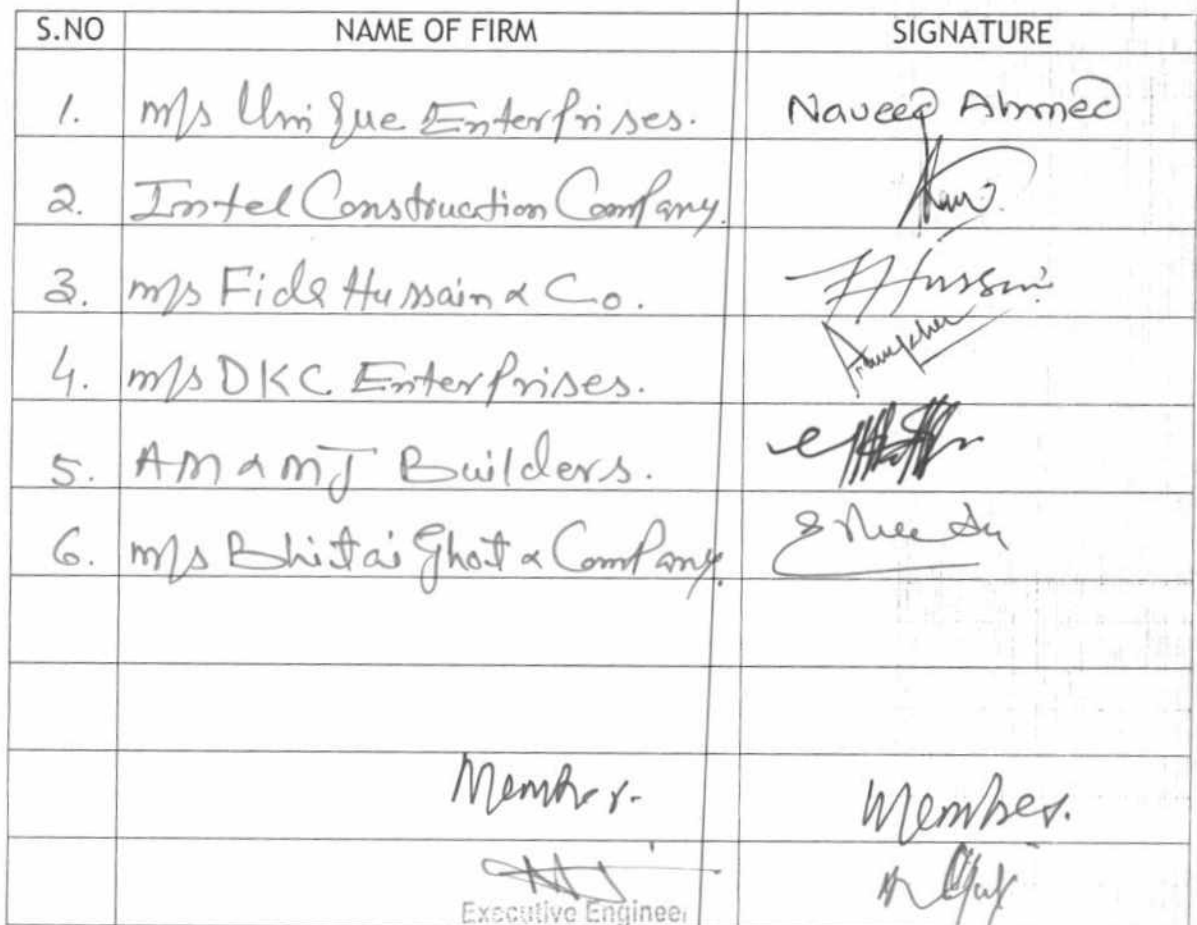 S.NO NAME OF FIRM SIGNATURE
1. M/s Unique Enterprises. Naveed Ahmed
2. Intel Construction Company.
3. M/s Fida Hussain & Co. Hussain
4. M/s DKC Enterprises.
5. AM & MJ Builders.
6. M/s Bhitai Ghot & Company.
Member. Member.
Executive Engineer